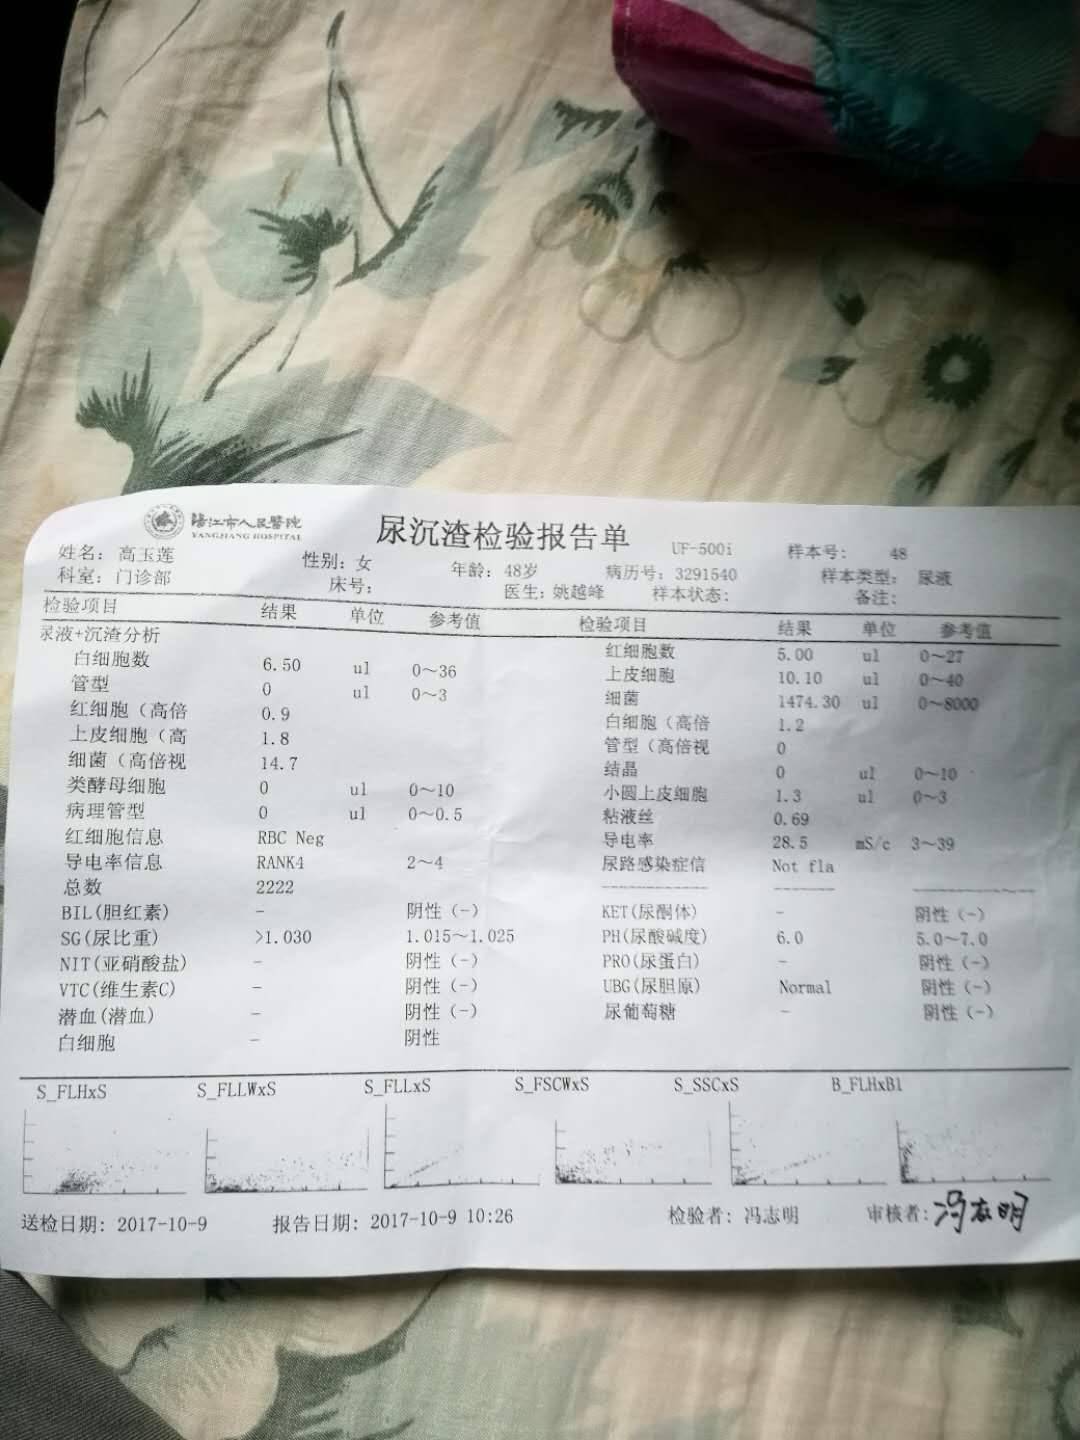 阳江市人民医院
YANGJIANG HOSPITAL
尿沉渣检验报告单
UF-500i 样本号: 48
姓名: 高玉莲 性别: 女 年龄: 48岁 病历号: 3291540 样本类型: 尿液
科室: 门诊部 床号: 医生: 姚越峰 样本状态: 备注:
检验项目 结果 单位 参考值 检验项目 结果 单位 参考值
尿液+沉渣分析
白细胞数 6.50 ul 0～36 红细胞数 5.00 ul 0～27
管型 0 ul 0～3 上皮细胞 10.10 ul 0～40
红细胞（高倍 0.9 细菌 1474.30 ul 0～8000
上皮细胞（高 1.8 白细胞（高倍 1.2
细菌（高倍视 14.7 管型（高倍视 0
类酵母细胞 0 ul 0～10 结晶 0 ul 0～10
病理管型 0 ul 0～0.5 小圆上皮细胞 1.3 ul 0～3
红细胞信息 RBC Neg 粘液丝 0.69
导电率信息 RANK4 2～4 导电率 28.5 mS/c 3～39
总数 2222 尿路感染症信 Not fla
BIL(胆红素) - 阴性（-） KET(尿酮体) - 阴性（-）
SG(尿比重) >1.030 1.015～1.025 PH(尿酸碱度) 6.0 5.0～7.0
NIT(亚硝酸盐) - 阴性（-） PRO(尿蛋白) - 阴性（-）
VTC(维生素C) - 阴性（-） UBG(尿胆原) Normal 阴性（-）
潜血(潜血) - 阴性（-） 尿葡萄糖 - 阴性（-）
白细胞 - 阴性
S_FLHxS S_FLLWxS S_FLLxS S_FSCWxS S_SSCxS B_FLHxB1
送检日期: 2017-10-9 报告日期: 2017-10-9 10:26 检验者: 冯志明 审核者: 冯志明